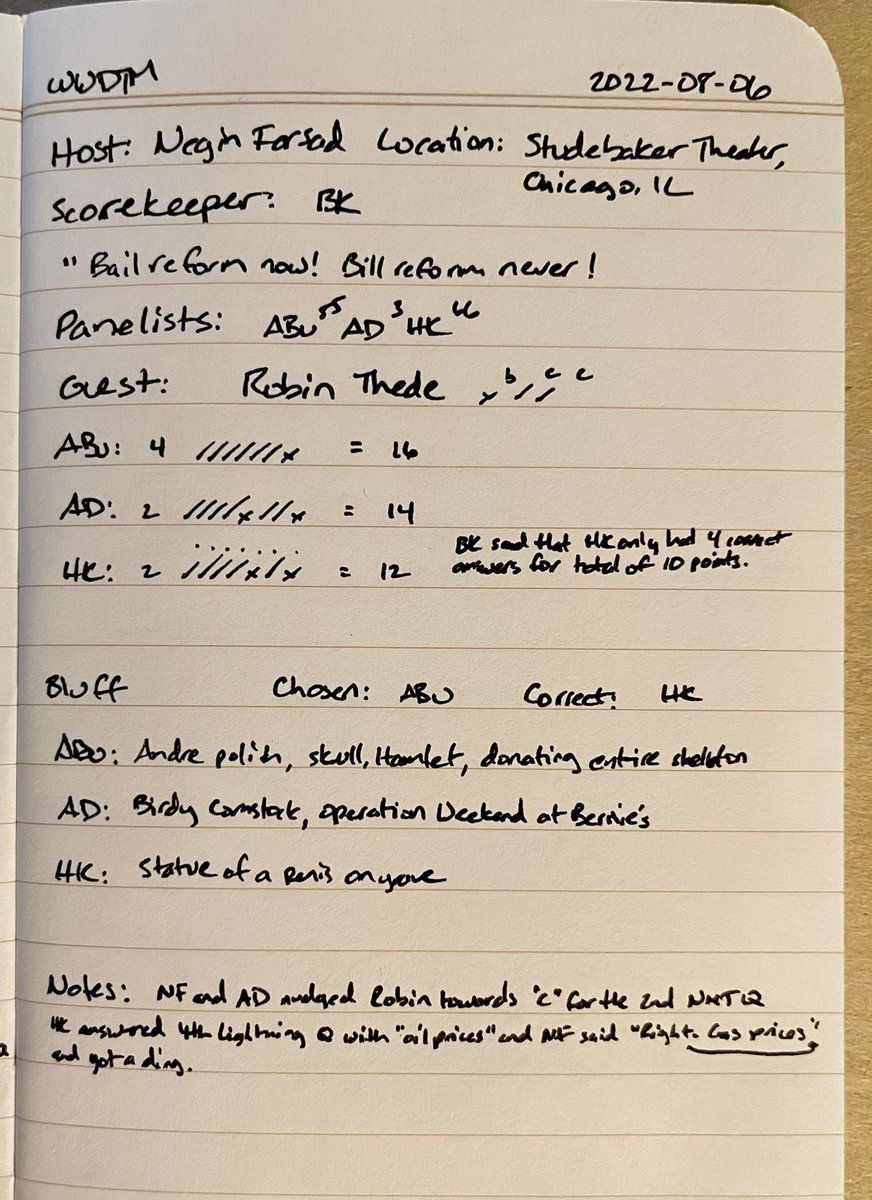 WWDTM 2022-08-06
Host: Negin Farsad Location: Studebaker Theater,
Chicago, IL
Scorekeeper: BK
"Bail reform now! Bill reform never!
Panelists: ABU AD 3 HK
Guest: Robin Thede x b / / c c
ABU: 4 //////x = 16
AD: 2 ////x//x = 14
HK: 2 ////x/x = 12
BK said that HK only had 4 correct
answers for total of 10 points.
Bluff Chosen: ABU Correct: HK
ABU: Andre polish, skull, Hamlet, donating entire skeleton
AD: Birdy Comstock, operation Weekend at Bernie's
HK: Statue of a penis on grave
Notes: NF and AD nudged Robin towards "C" for the 2nd NMJ Q
HK answered 4th Lightning Q with "oil prices" and NF said "Right. Gas prices"
and got a ding.